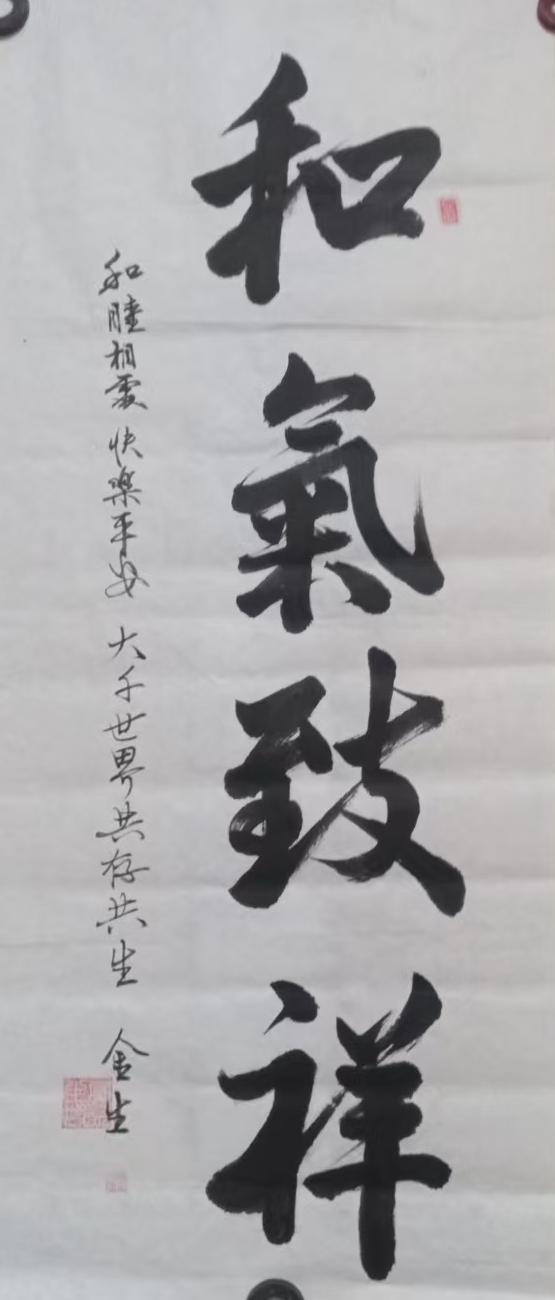 和氣致祥
和睦相處 快樂平安 大千世界共存共生 金生